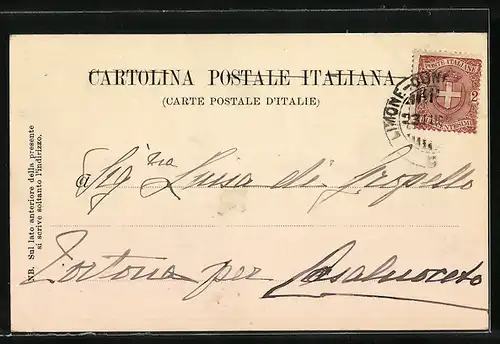 CARTOLINA POSTALE ITALIANA
(CARTE POSTALE D'ITALIE)
POSTE ITALIANE
2
CENTESIMI
LIMONE-CUNEO
NB. Sul lato anteriore della presente
si scrive soltanto l'indirizzo.
a Sig.ra Luisa di Gropello
Tortona per Casalnoceto